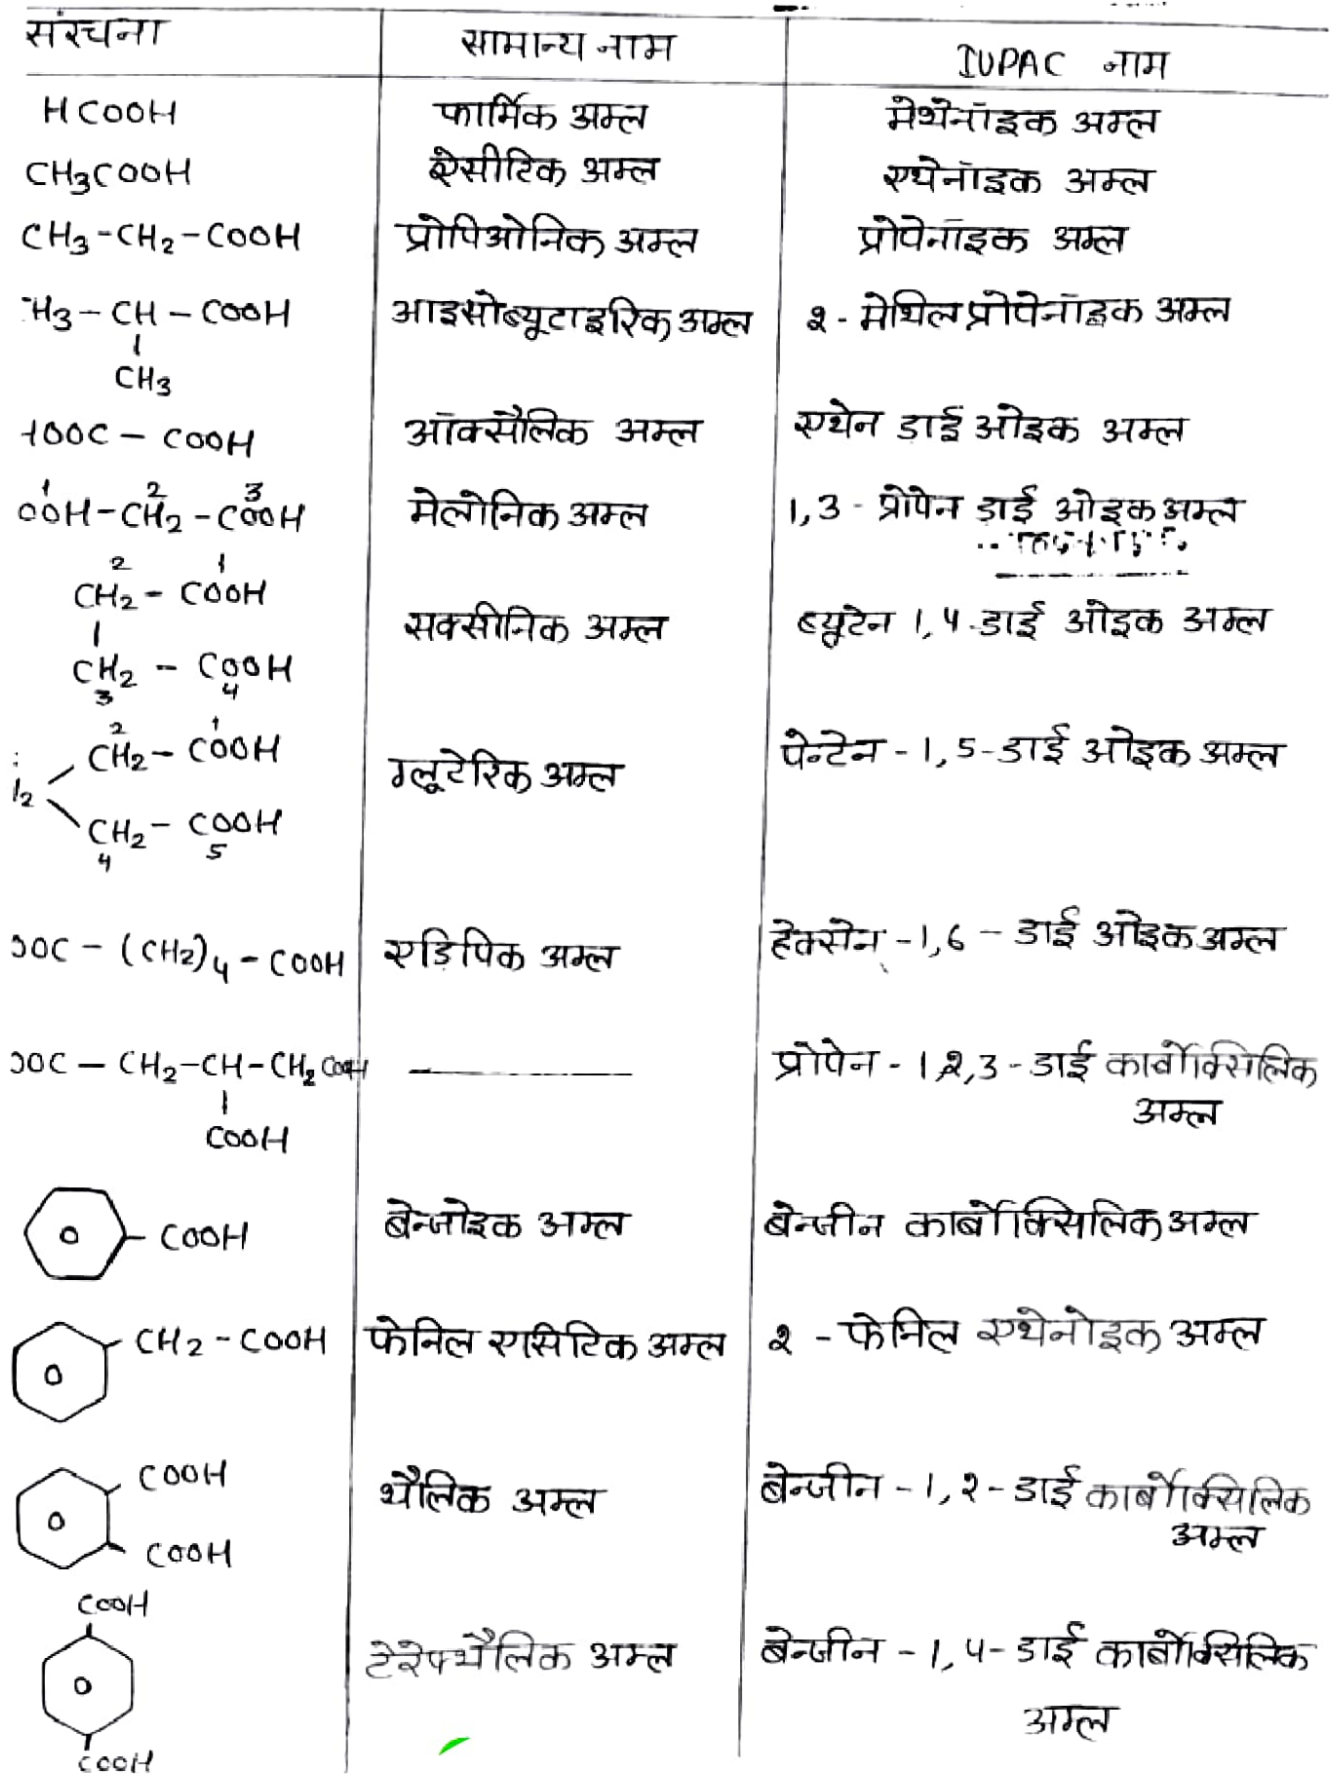 संरचना सामान्य नाम IUPAC नाम
HCOOH फार्मिक अम्ल मेथेनॉइक अम्ल
CH3COOH ऐसीटिक अम्ल एथेनॉइक अम्ल
CH3-CH2-COOH प्रोपिओनिक अम्ल प्रोपेनॉइक अम्ल
H3-CH-COOH आइसोब्यूटाइरिक अम्ल २-मेथिल प्रोपेनॉइक अम्ल
CH3
HOOC-COOH ऑक्सैलिक अम्ल एथेन डाई ओइक अम्ल
1 2 3
OOH-CH2-COOH मेलोनिक अम्ल 1,3-प्रोपेन डाई ओइक अम्ल
2 1
CH2-COOH
सक्सीनिक अम्ल ब्यूटेन 1,4-डाई ओइक अम्ल
CH2-COOH
3 4
2 1
CH2-COOH पेन्टेन-1,5-डाई ओइक अम्ल
ग्लूटेरिक अम्ल
CH2-COOH
4 5
OOC-(CH2)4-COOH एडिपिक अम्ल हेक्सेन-1,6-डाई ओइक अम्ल
OOC-CH2-CH-CH2COOH प्रोपेन-1,2,3-डाई कार्बोक्सिलिक
COOH अम्ल
COOH बेन्जोइक अम्ल बेन्जीन कार्बोक्सिलिक अम्ल
CH2-COOH फेनिल एसिटिक अम्ल २-फेनिल एथेनोइक अम्ल
COOH थैलिक अम्ल बेन्जीन-1,२-डाई कार्बोक्सिलिक
COOH अम्ल
COOH
टेरेफ्थैलिक अम्ल बेन्जीन-1,4-डाई कार्बोक्सिलिक
अम्ल
COOH